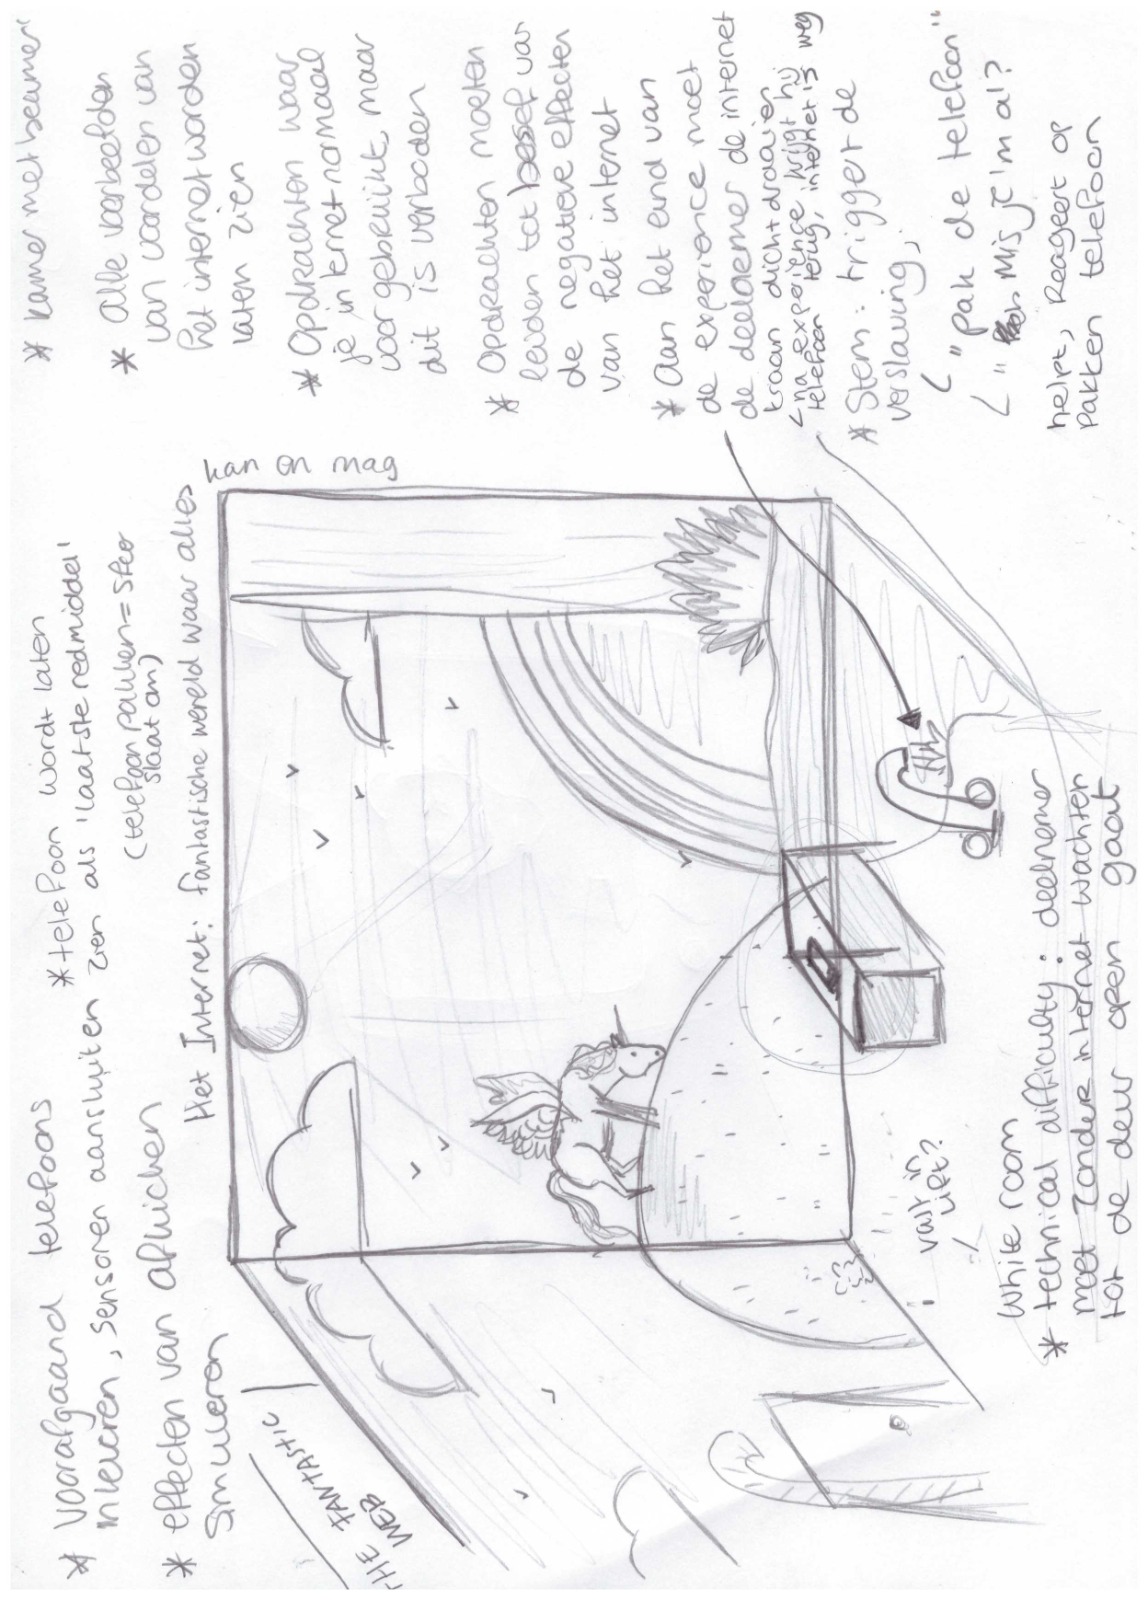 * Voorafgaand telefoons
inleveren, sensoren aansluiten
* effecten van afkicken
simuleren
* telefoon wordt laten
zien als 'laatste redmiddel'
(telefoon pakken = sfeer
slaat om)
THE FANTASTIC
WEB
Het Internet: fantastische wereld waar alles
kan en mag
* kamer met beamer
* Alle voorbeelden
van voordelen van
het internet worden
laten zien
* Opdrachten waar
je internet normaal
voor gebruikt, maar
dit is verboden
* Opdrachten moeten
leiden tot besef van
de negatieve effecten
van het internet
* Aan het eind van
de experience moet
de deelnemer de internet
kraan dicht draaien
< na experience krijgt hij
telefoon terug, internet is weg
* Stem: trigger de
verslaving,
< "pak de telefoon"
< "Mis je 'm al?
helpt, Reageert op
pakken telefoon
vast in
lift?
White room
* technical difficulty: deelnemer
moet zonder internet wachten
tot de deur open gaat